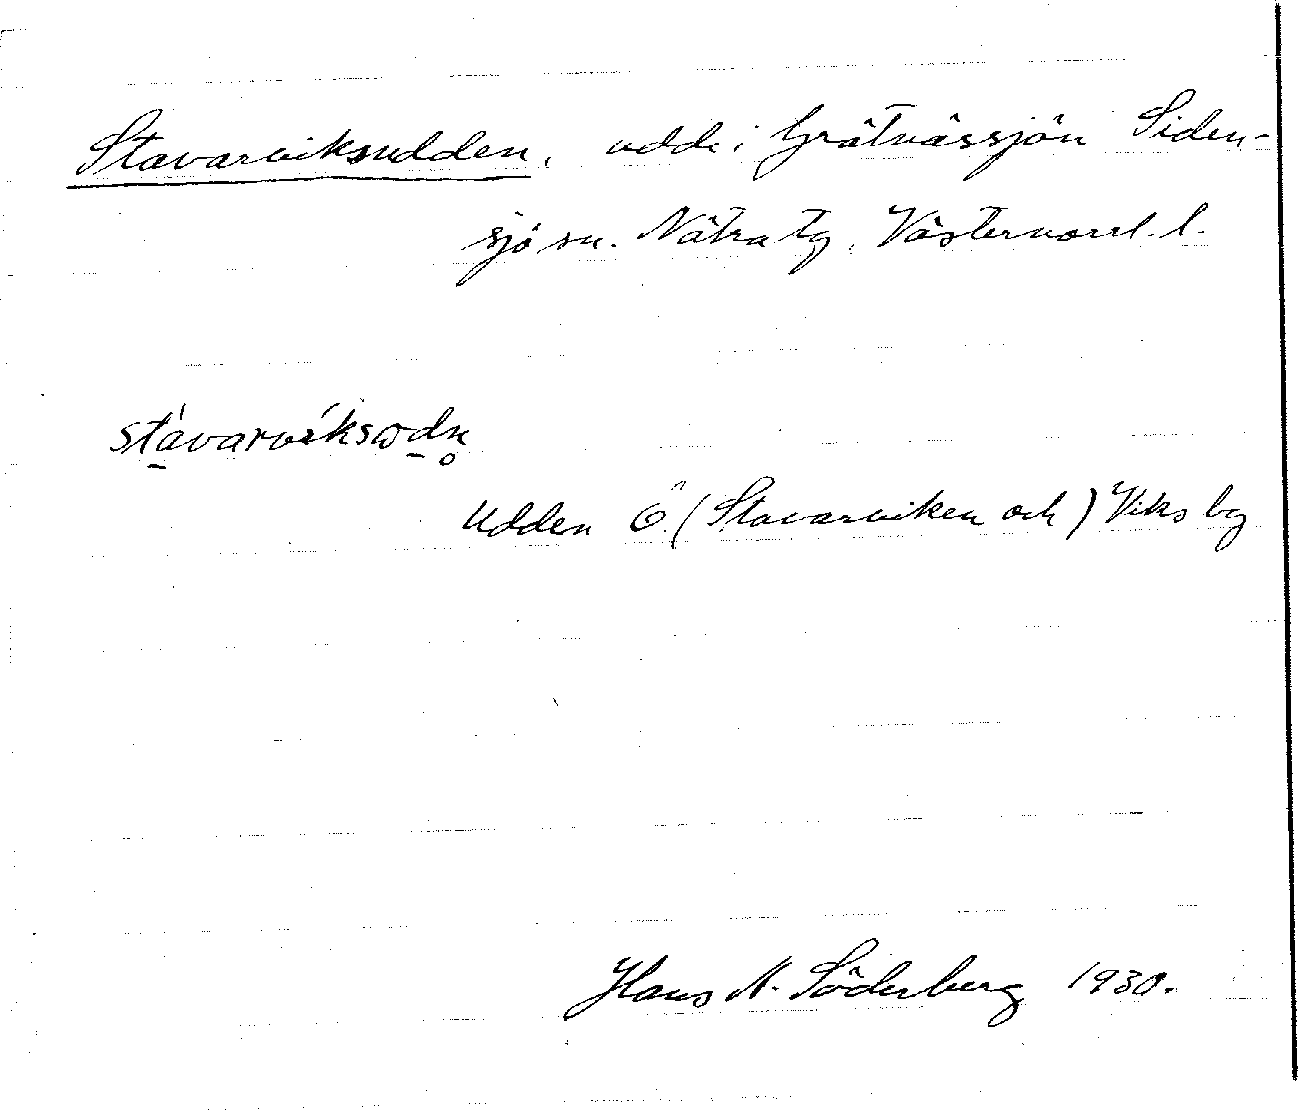 Stavarviksudden, udde i Grätnässjön Siden-
sjö sn. Nätra tg, Västernorrl. l.
stavarviksωdn̥
Udden Ö. (Stavarviken och) Viks by
Hans N. Söderberg 1930.